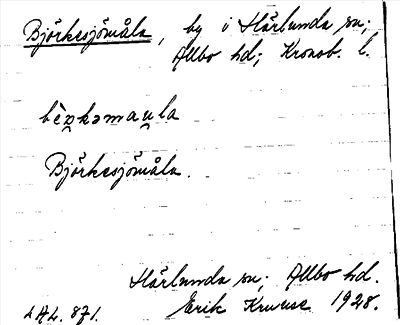 Björkesjömåla, by i Härlunda sn;
Allbo hd; Kronob. l.
bè̯rkəmau̯la
Björkesjömåla.
Härlunda sn; Allbo hd.
LAL. 871. Erik Kruuse 1928.